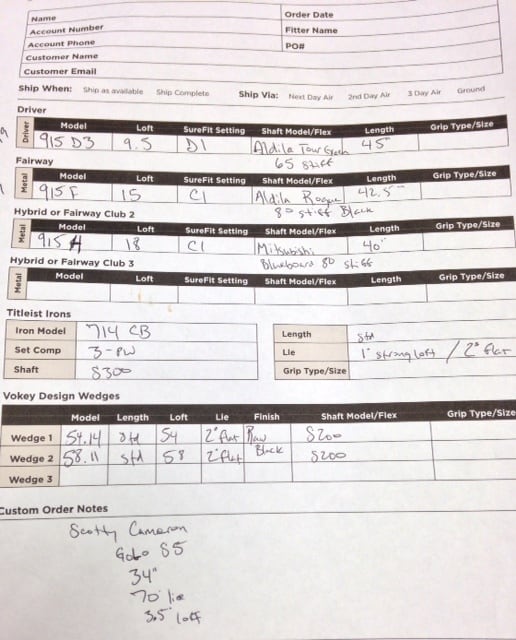 Name Order Date
Account Number Fitter Name
Account Phone PO#
Customer Name
Customer Email
Ship When: Ship as available Ship Complete Ship Via: Next Day Air 2nd Day Air 3 Day Air Ground
Driver
Driver Model Loft SureFit Setting Shaft Model/Flex Length Grip Type/Size
915 D3 9.5 D1 Aldila Tour Green 45"
65 stiff
Fairway
Metal Model Loft SureFit Setting Shaft Model/Flex Length Grip Type/Size
915F 15 C1 Aldila Rogue 42.5"
80 stiff Black
Hybrid or Fairway Club 2
Metal Model Loft SureFit Setting Shaft Model/Flex Length Grip Type/Size
915 H 18 C1 Mitsubishi 40"
Blueboard 80 stiff
Hybrid or Fairway Club 3
Metal Model Loft SureFit Setting Shaft Model/Flex Length Grip Type/Size
Titleist Irons
Iron Model 714 CB Length std
Set Comp 3-PW Lie 1° strong loft / 2° flat
Shaft S300 Grip Type/Size
Vokey Design Wedges
Model Length Loft Lie Finish Shaft Model/Flex Grip Type/Size
Wedge 1 54.14 std 54 2° flat Raw S200
Wedge 2 58.11 std 58 2° flat Black S200
Wedge 3
Custom Order Notes
Scotty Cameron
GoLo S5
34"
70° lie
3.5° loft